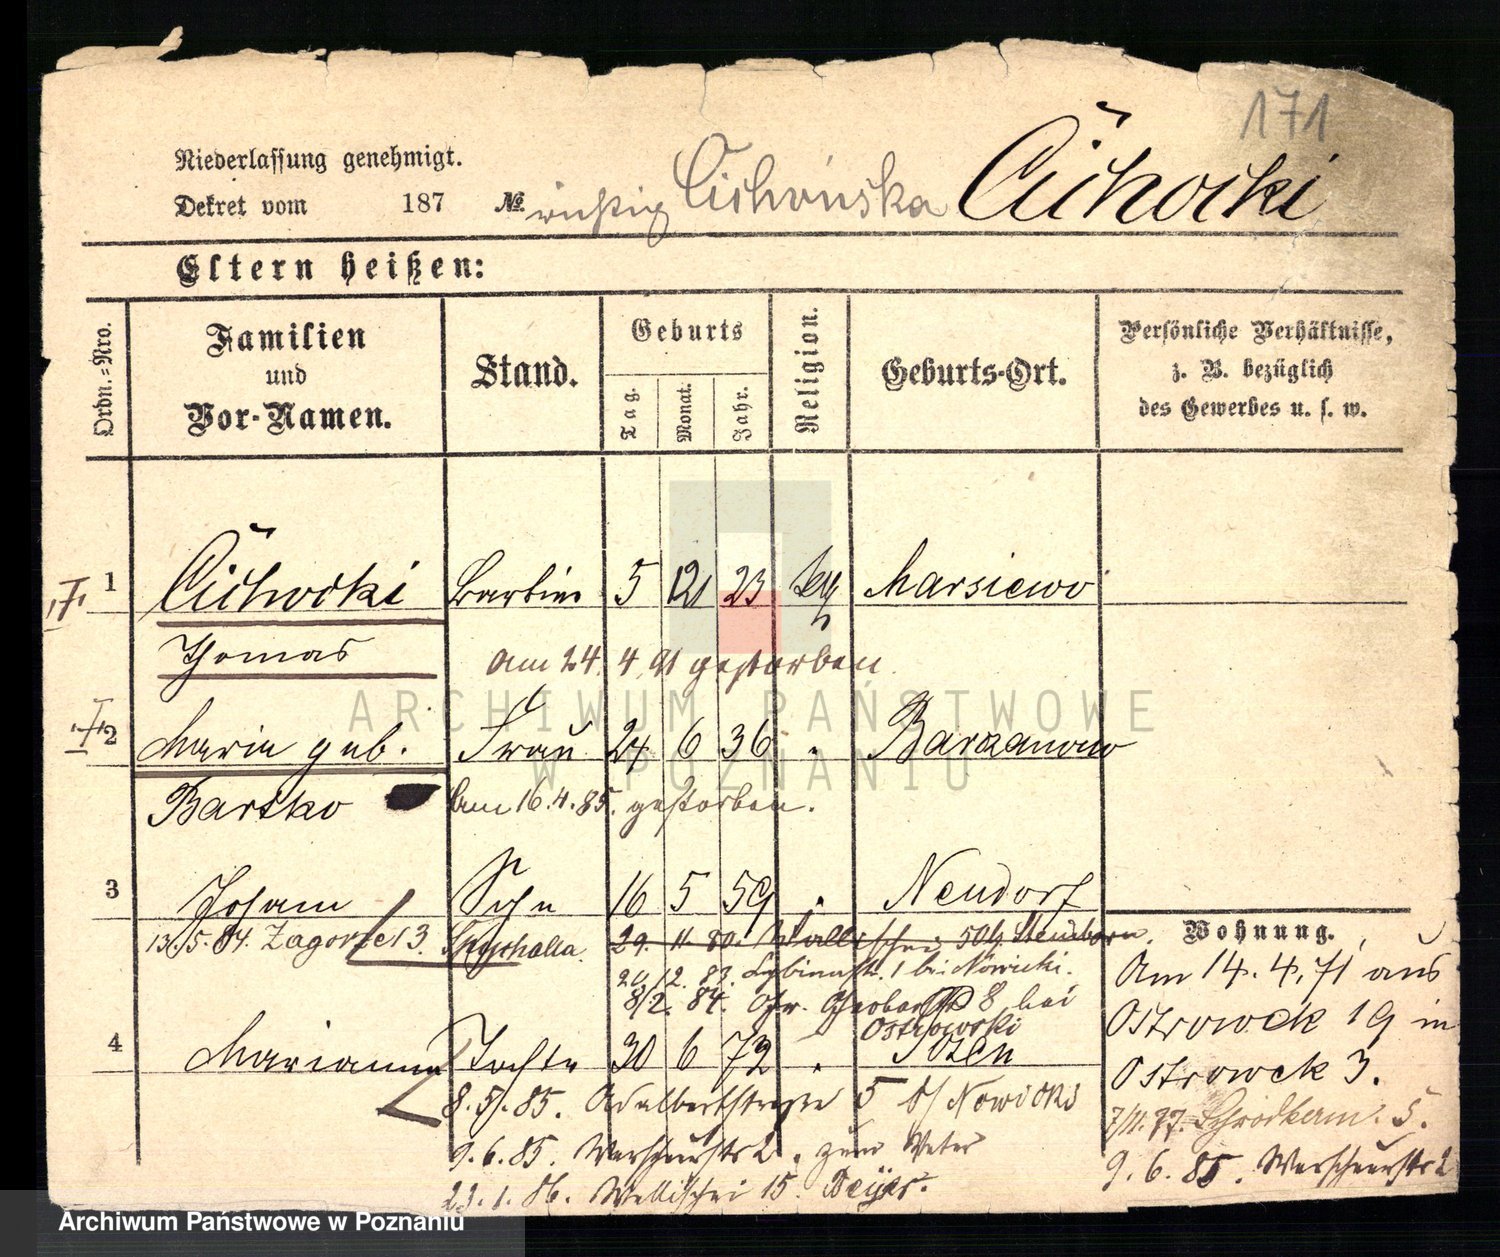 171
Niederlassung genehmigt.
Dekret vom 187 № richtig Cichońska Cichocki
Eltern heißen:
Ordn.-Nro.
Familien und Vor-Namen.
Stand.
Geburts
Tag.
Monat.
Jahr.
Religion.
Geburts-Ort.
Persönliche Verhältnisse, z. B. bezüglich des Gewerbes u. s. w.
1 Cichocki 5 12 23 Marsiewo
Thomas am 24. 4. 91 gestorben.
2 Maria geb. Frau 24 6 36 "
Bartko am 16.4.85. gestorben.
3 Johann Sohn 16 5 59 " Neudorf
Wohnung.
13./5. 84. Zagorze 3. 29. 11. 80. Wallischei
20/12. 83. Lybinastr. 1 bei Nowicki.
8/2. 84. 8 bei
Ostrowski
Am 14. 4. 71 aus
Ostrowek 19 in
Ostrowek 3.
4 Marianna Tochter 30 6 72 " Posen
8. 5. 85. Adalbertstrasse 5 b/ Nowicki
7/11. 77. 5.
9. 6. 85. 2. zum Vater
9. 6. 85. 2
23. 1. 86. Wallischei 15.
ARCHIWUM PAŃSTWOWE
W POZNANIU
Archiwum Państwowe w Poznaniu